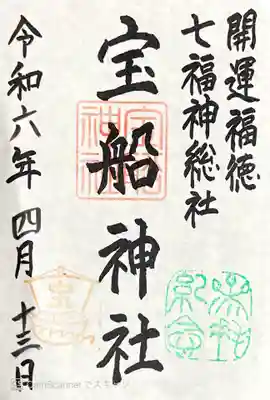 開運福徳
七福神総社
宝船神社
令和六年 四月 十三日
参拝
記念
宝
CamScanner でスキャン